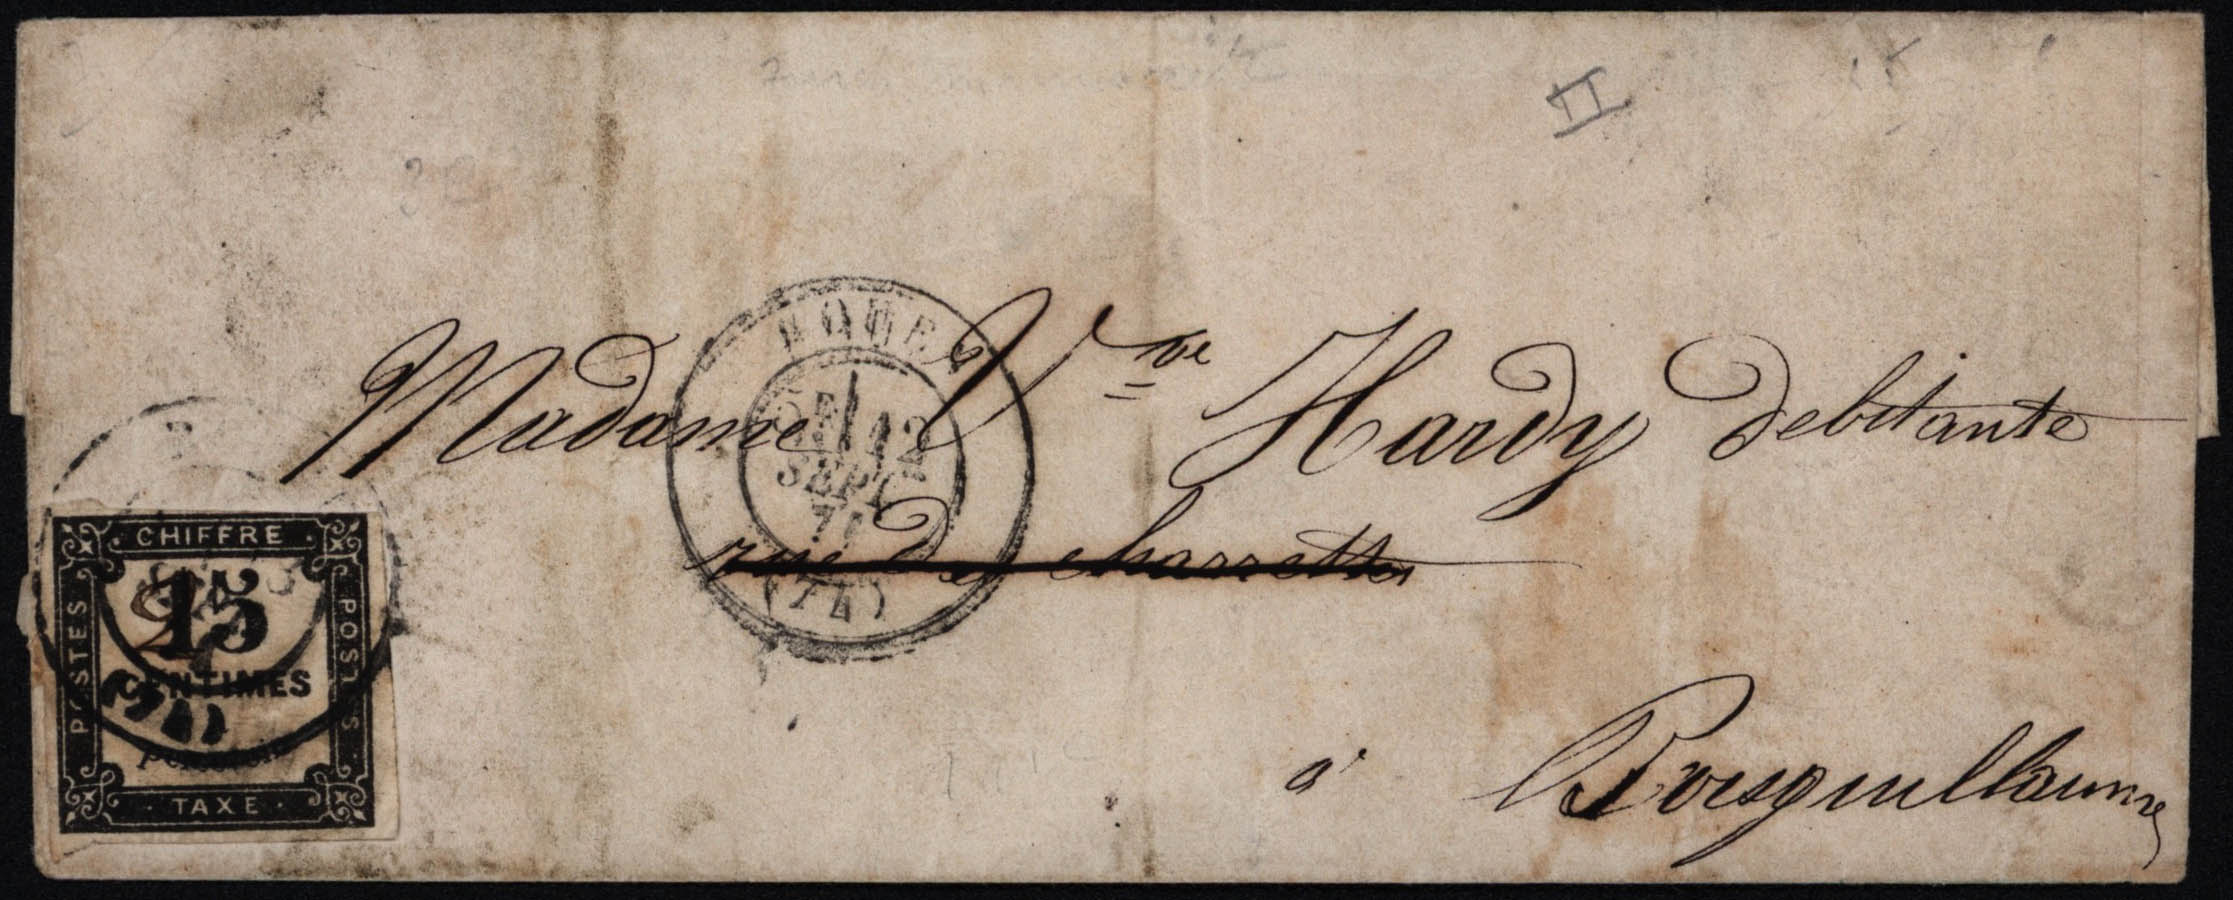 II
ROUEN
2E/ 12
SEPT
71
(74)
Madame Vve Hardy debitante
rue des charrettes
à Boisguillaume
CHIFFRE
POSTES
POSTES
15
CENTIMES
percevoir
TAXE